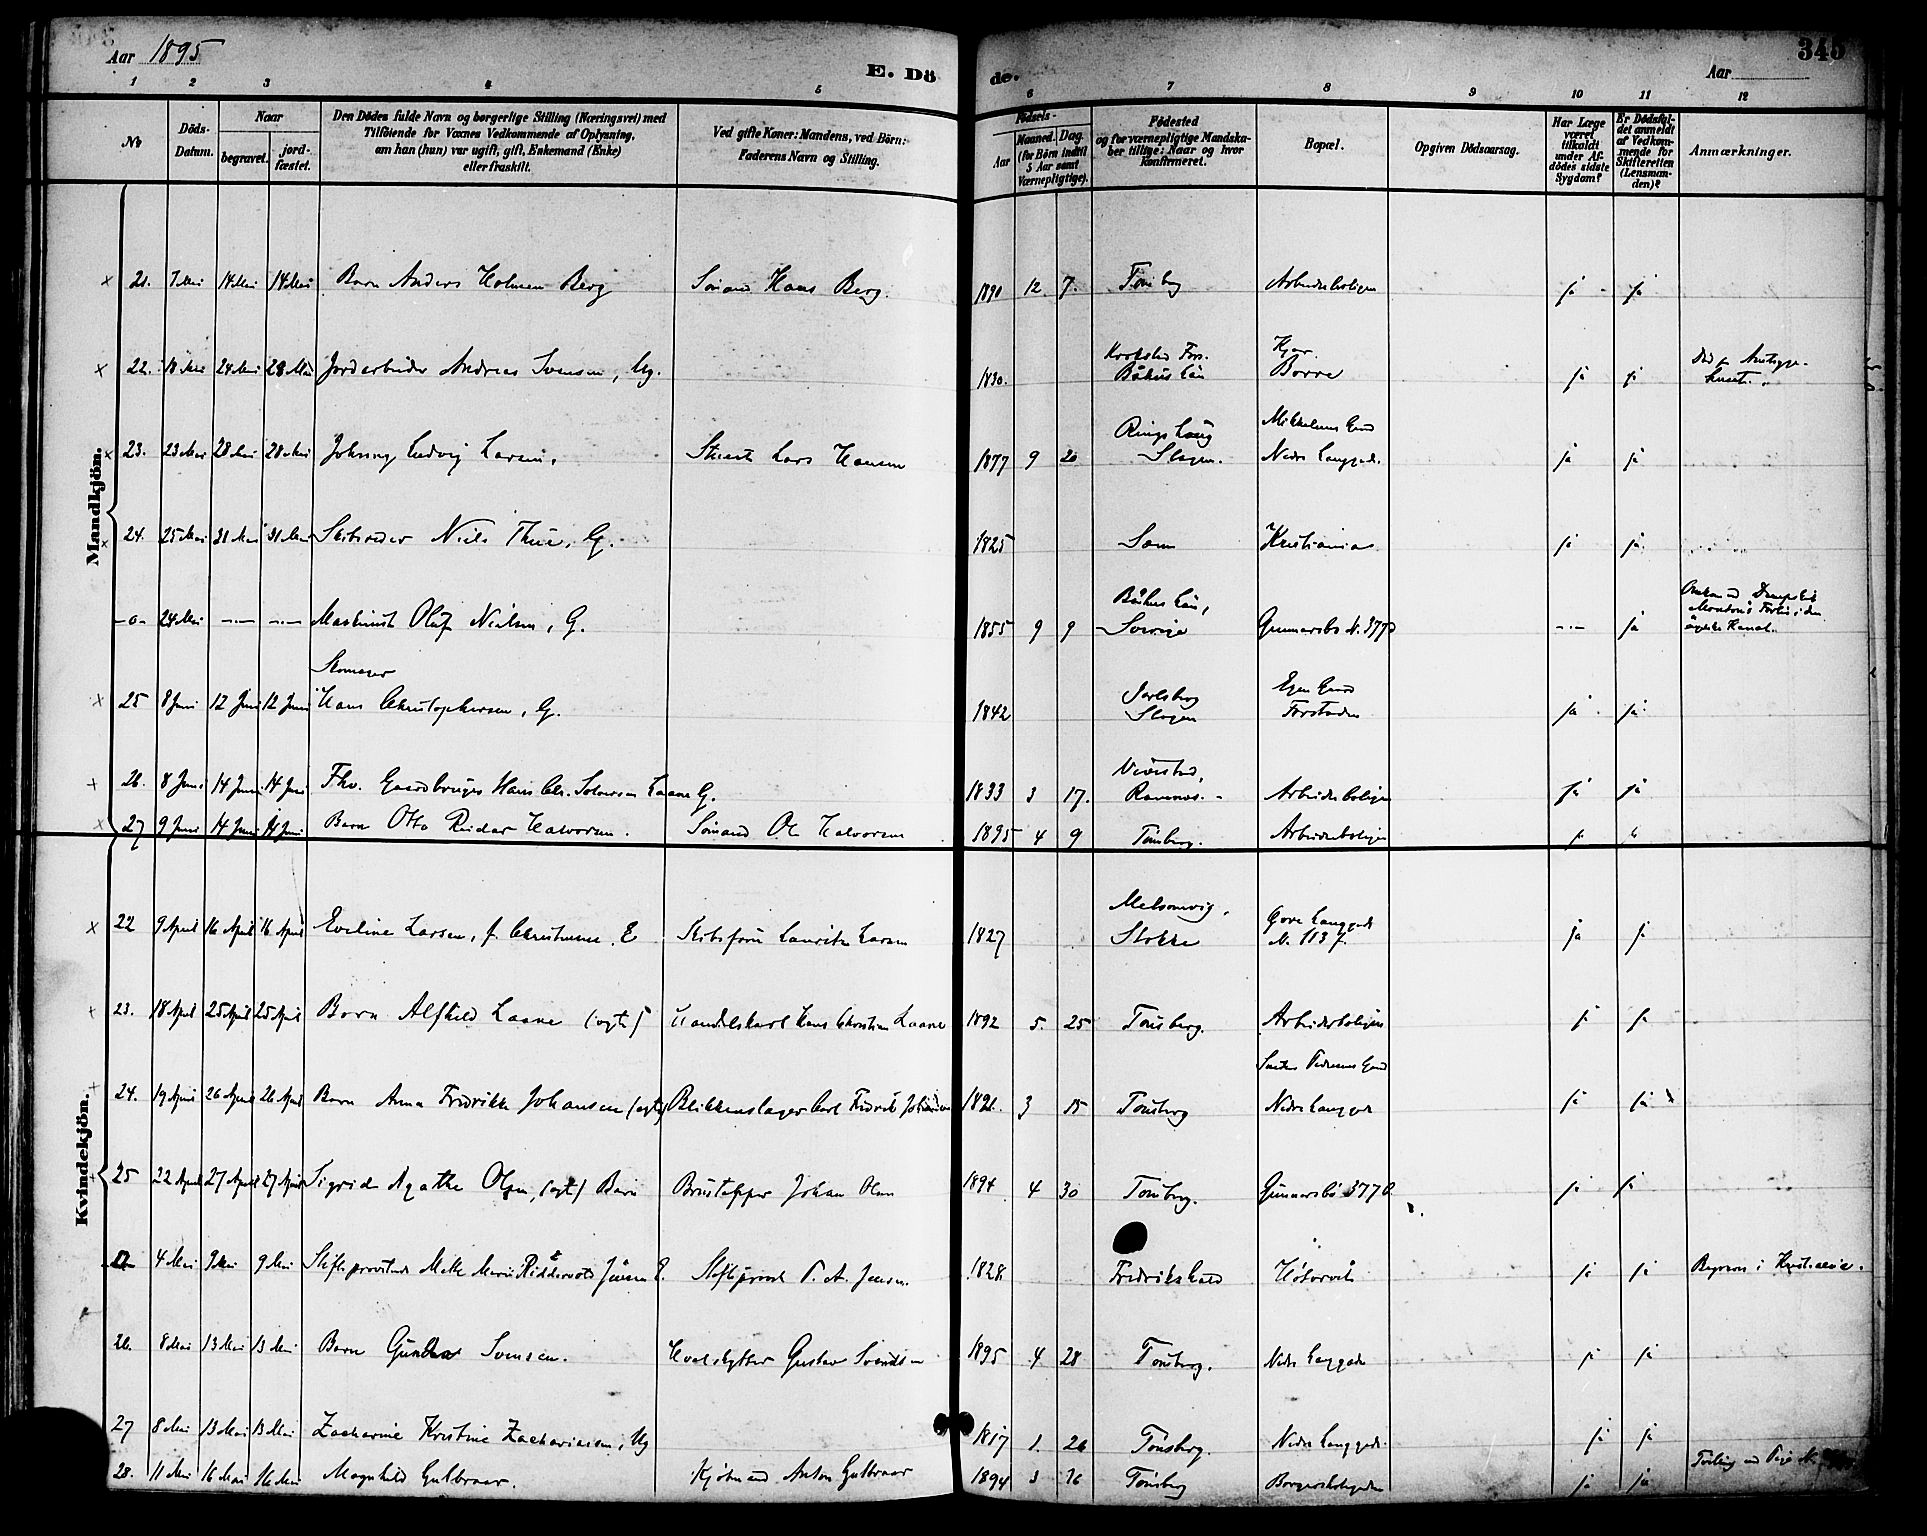 Aar 1895
E. Dö
de.
345
Aar
1 2 3 4 5 6 7 8 9 10 11 12
No
Döds-
Datum.
Naar
begravet.
jord-
fæstet.
Den Dödes fulde Navn og borgerlige Stilling (Næringsvei) med
Tilföiende for Voxnes Vedkommende af Oplysning,
om han (hun) var ugift, gift, Enkemand (Enke)
eller fraskilt.
Ved gifte Koner: Mandens, ved Börn:
Faderens Navn og Stilling.
Födsels-
Aar
Maaned.
Dag.
(for Börn indtil
5 Aar samt
Værnepligtige).
Födested
og for værnepligtige Mandska-
ber tillige: Naar og hvor
konfirmeret.
Bopæl.
Opgiven Dödsaarsag.
Har Læge
været
tilkaldt
under Af-
dödes sidste
Sygdom?
Er Dödsfal-
det anmeldt
af Vedkom-
mende for
Skifteretten
(Lensman-
den)?
Anmærkninger.
Mandkjön.
21. 7 Mai 14 Mai 14 Mai Barn Anders Holmen Berg Sömand Hans Berg. 1890 12. 7. Tönsberg Arbeiderboligen ja ja
22. 18 Mai 24 Mai 28 Mai Jordarbeider Andreas Svensen, Ug. 1830. Båhus Län Borre ja ja
23. 23 Mai 28 Mai 28 Mai Johnny Ludvig Larsen, Lars Hansen 1877 9 20 Slagen. Nedre Langgade. ja ja
24. 25 Mai 31 Mai 31 Mai Skibsreder Niels Thue, G. 1825 Kristiania ja ja
-o- 24 Mai -"- -"- Maskinist Olaf Nielsen, G. 1855 9 9 Båhus Län, Sverige Gunnarsbö N. 377 -"- ja
Skomager
25 8 Juni 12 Juni 12 Juni Hans Christophersen, G. 1842 Jarlsberg Slagen Egen Gaard Forstaden ja ja
26. 8 Juni 14 Juni 14 Juni Fhv. Gaardbruger Hans Chr. Laane G. 1833 3 17. Ramnæs. Arbeiderboligen ja ja
27 9 Juni 14 Juni 14 Juni Barn Otto Reidar Halvorsen. Sömand Ole Halvorsen 1895 4 9 Tönsberg. Arbeiderboligen ja
Kvindekjön.
22 9 April 16 April 16 April Eveline Larsen, f. Christensen, E Skibsförer Lauritz Larsen 1827 Melsomvig, Stokke Övre Langgade N. 1137. ja ja
23. 18 April 25 April 25 April Barn Alfhild Laane (ægte) Handelskarl Hans Christian Laane 1892 5. 25 Tönsberg. Arbeiderboligen ja ja
24. 19 April 26 April 26 April Barn Anna Fredrikke Johansen (ægte) Blikkenslager Carl Fredrik Johansen 3 15 Tönsberg Nedre Langgade ja ja
25 22 April 27 April 27 April Sigrid Agathe Olsen, (ægt) Barn Johan Olsen 1894 4 30 Tönsberg. Gunnarsbö 377 ja ja
4 Mai 9 Mai 9 Mai Stiftsprovstinde Mette Marie Riddervold Jensen E. Stiftsprovst P. A. Jensen. 1828 Fredrikshald ja ja Begraven i Kristiania.
26. 8 Mai 13 Mai 13 Mai Barn Svensen. Hvalskytter Gustav Svendsen 1895 4 28 Tönsberg. Nedre Langgade ja ja
27 8 Mai 13 Mai 13 Mai Zacharine Kristine Zachariasen, Ug 1817 1. 26 Tönsberg. Nedre Langgade. ja ja
28. 11 Mai 16 Mai 16 Mai Magnhild Gulbraar. Kjöbmand Anton Gulbraar 1894 3 16 Tönsberg ja ja